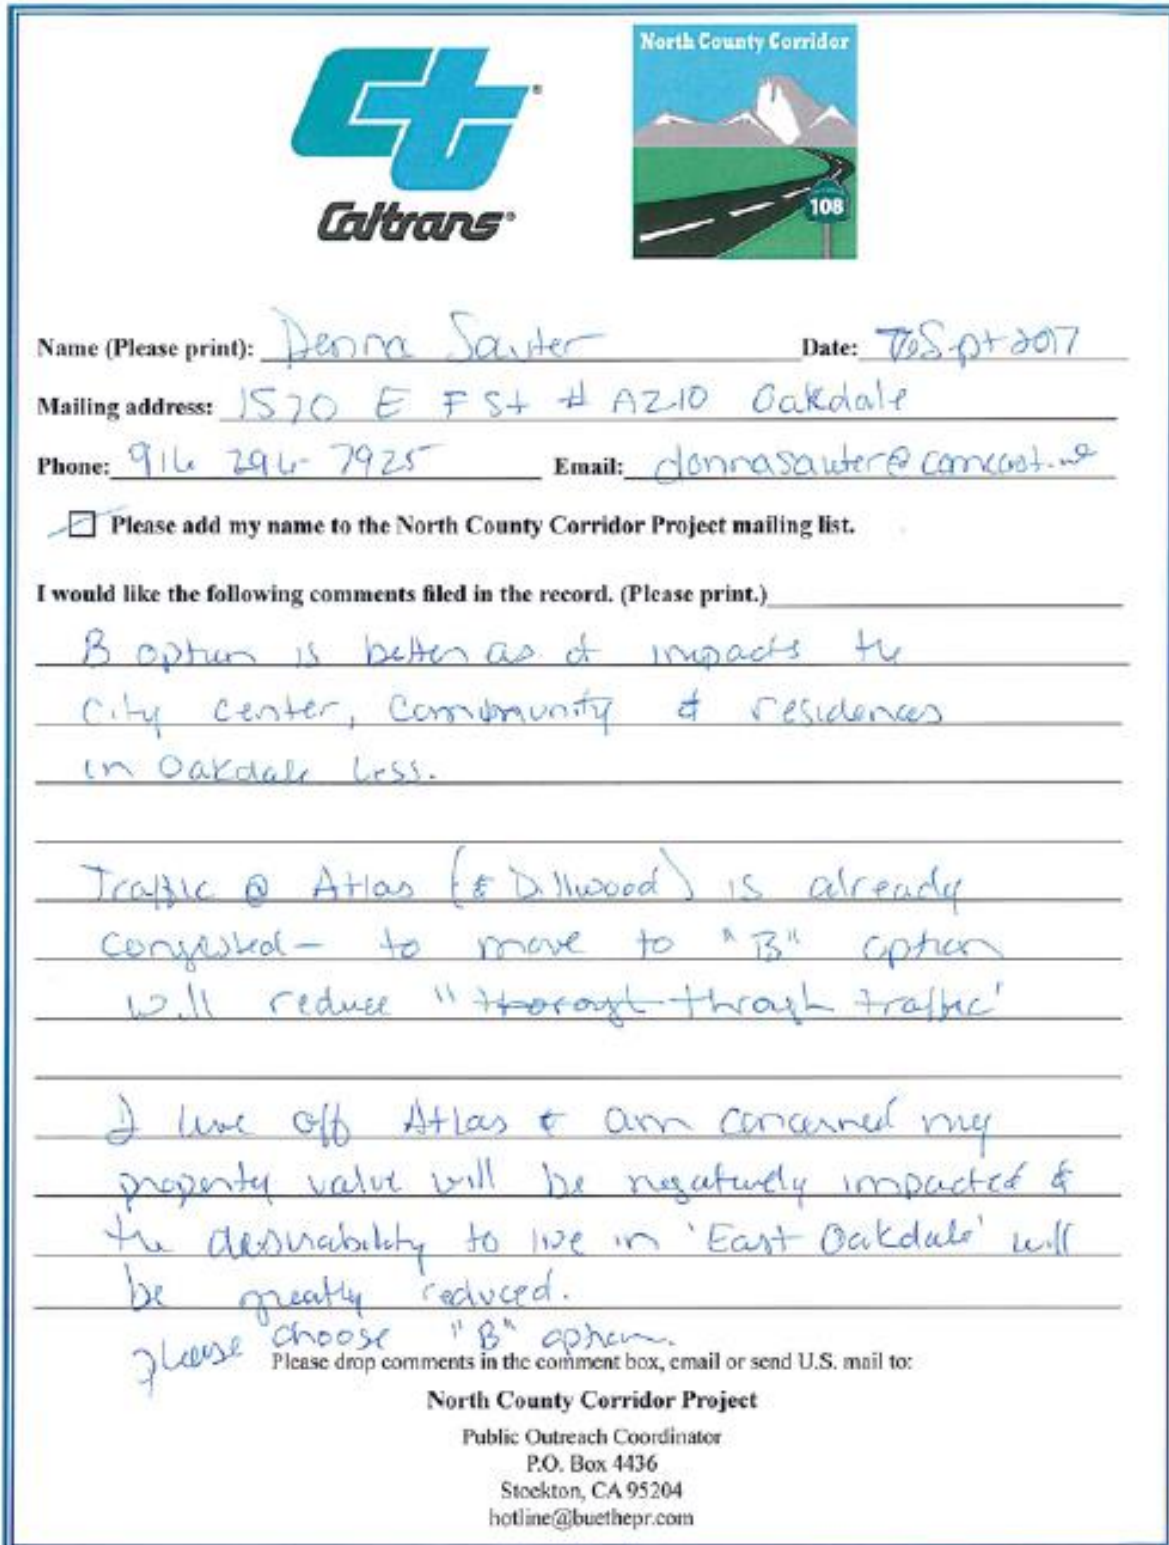 Ct
Caltrans
North County Corridor
108
Name (Please print): Donna Sauter Date: Sept 2017
Mailing address: 1570 E F St # A210 Oakdale
Phone: 916 7925 Email: donnasauter@comcast.net
Please add my name to the North County Corridor Project mailing list.
I would like the following comments filed in the record. (Please print.)
B option is better as it impacts the
City center, Community & residences
in Oakdale less.
Traffic @ Atlas (& Dillwood) is already
congested - to move to "B" option
will reduce "through traffic'
I live off Atlas & am concerned my
property value will be negatively impacted &
the desirability to live in 'East Oakdale' will
be greatly reduced.
please choose "B" option.
Please drop comments in the comment box, email or send U.S. mail to:
North County Corridor Project
Public Outreach Coordinator
P.O. Box 4436
Stockton, CA 95204
hotline@buethepr.com